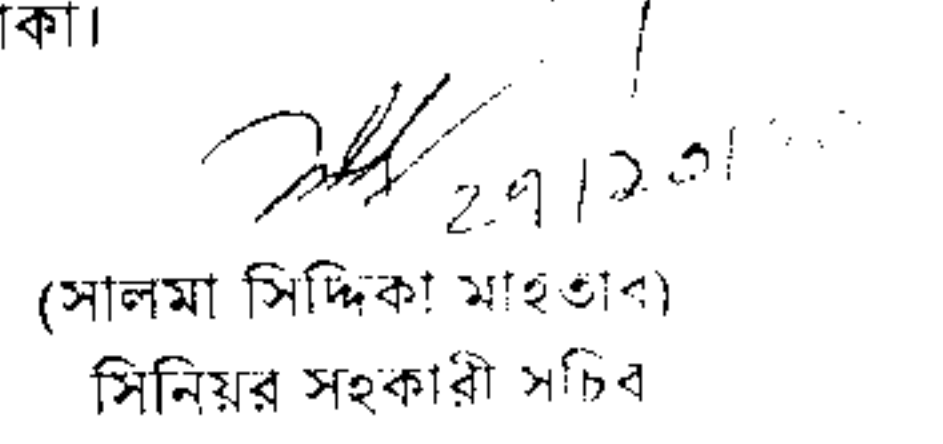 াকা।
২৭/১০/
(সালমা সিদ্দিকা মাহতাব)
সিনিয়র সহকারী সচিব